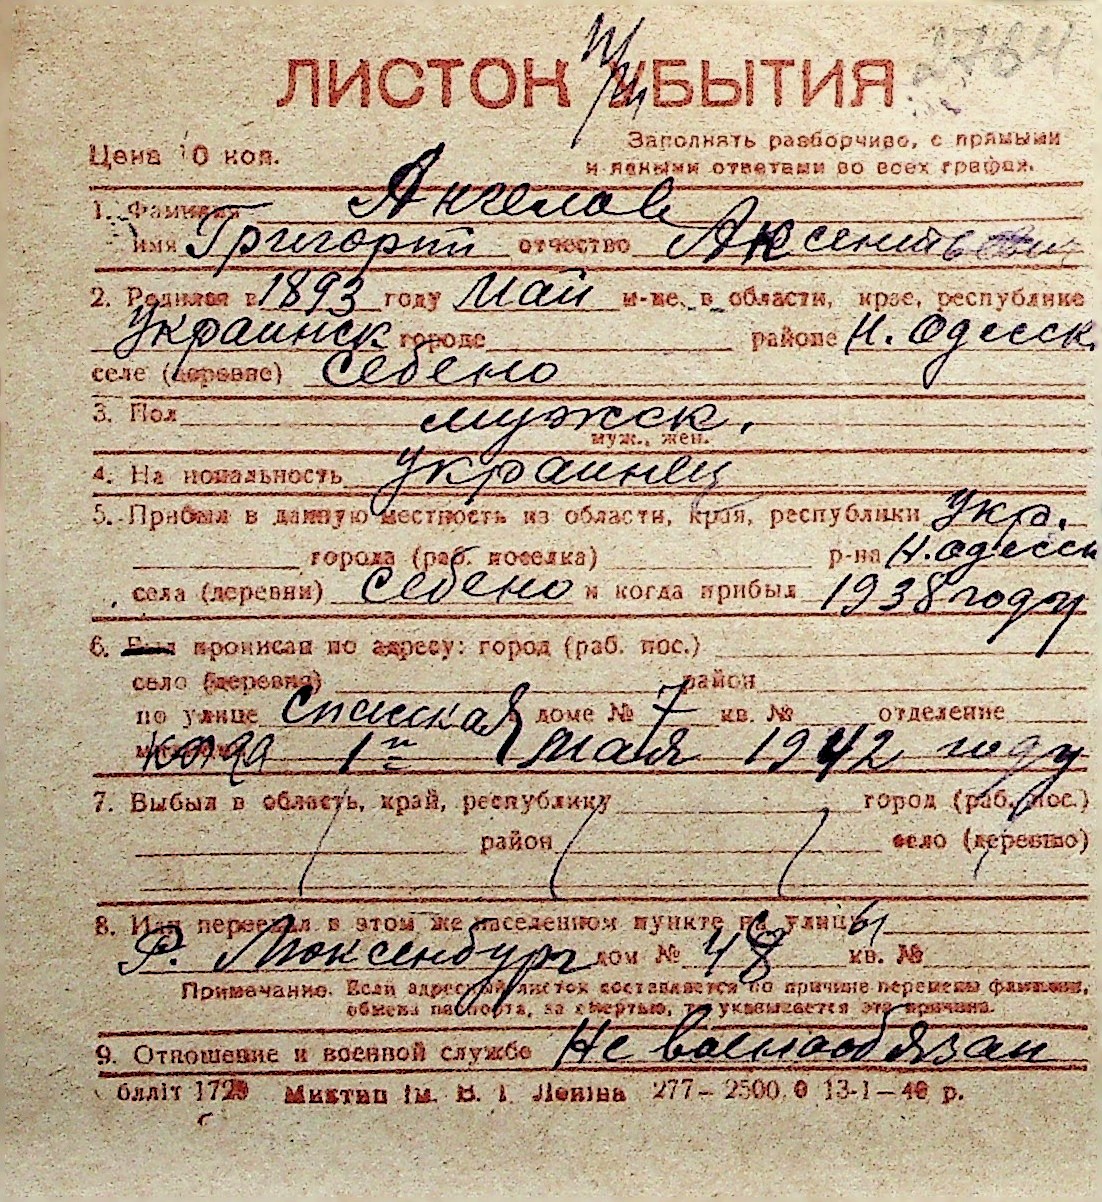 2784
ЛИСТОК УБЫТИЯ
Цена 10 коп.
Заполнять разборчиво, с прямыми
и ясными ответами во всех графах.
1. Фамилия Ангелов
имя Григорий отчество Аксентьевич
2. Родился в 1893 году Май м-це, в области, крае, республике
Украинск. городе районе Н. Одесск.
селе (деревне) Себено
3. Пол мужск.
муж., жен.
4. Национальность украинец
5. Прибыл в данную местность из области, края, республики Укр.
города (раб. поселка) р-на Н. Одесск
села (деревни) Себено и когда прибыл 1938 году
6. Был прописан по адресу: город (раб. пос.)
село (деревня) район
по улице Спасская доме № 7 кв. № отделение
1го мая 1942 году
7. Выбыл в область, край, республику город (раб. пос.)
район село (деревню)
8. Или переехал в этом же населенном пункте на улицу
Р. Люксенбург дом № 48 кв. №
Примечание. Если адресный листок составляется по причине перемены фамилии,
обмена паспорта, за смертью, то указывается эта причина.
9. Отношение к военной службе Не военнообязан
блліт 1729 Миктип ім. В. І. Леніна 277–2500.0 13-1–40 р.